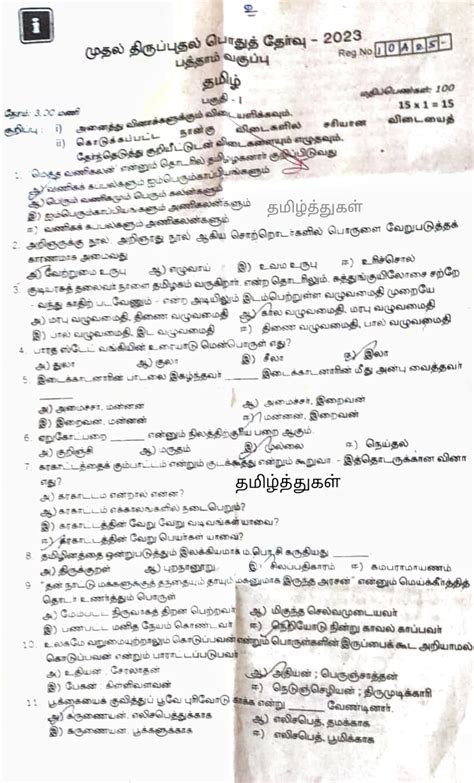 உ
i
முதல் திருப்புதல் பொதுத் தேர்வு - 2023
பத்தாம் வகுப்பு
Reg.No. 10A25-
தமிழ்
நேரம்: 3.00 மணி
பகுதி - I
மதிப்பெண்கள்: 100
15 x 1 = 15
குறிப்பு: i) அனைத்து வினாக்களுக்கும் விடையளிக்கவும்.
ii) கொடுக்கப்பட்ட நான்கு விடைகளில் சரியான விடையைத்
தேர்ந்தெடுத்து குறியீட்டுடன் விடைகளையும் எழுதவும்.
1. வணிகக் கப்பல்களும் என்னும் தொடரில் தமிழழகனார் குறிப்பிடுவது
அ) வணிகக் கப்பல்களும் ஐம்பெரும்காப்பியங்களும்
ஆ) பெரும் வணிகமும் பெரும் கலன்களும்
இ) ஐம்பெரும்காப்பியங்களும் அணிகலன்களும்
ஈ) வணிகக் கப்பல்களும் அணிகலன்களும்
தமிழ்த்துகள்
2. அறிஞருக்கு நூல், அறிஞரது நூல் ஆகிய சொற்றொடர்களில் பொருளை வேறுபடுத்தக்
காரணமாக அமைவது
அ) வேற்றுமை உருபு ஆ) எழுவாய் இ) உவம உருபு ஈ) உரிச்சொல்
3. குடியரசுத் தலைவர் நாளை தமிழகம் வருகிறார். என்ற தொடரிலும். கத்துங்குயிலோசை சற்றே
- வந்து காதிற் படவேணும் - என்ற அடியிலும் இடம்பெற்றுள்ள வழுவமைதி முறையே
அ) மரபு வழுவமைதி, திணை வழுவமைதி ஆ) கால வழுவமைதி, மரபு வழுவமைதி
இ) பால் வழுவமைதி, இட வழுவமைதி ஈ) திணை வழுவமைதி, பால் வழுவமைதி
4. பாரத ஸ்டேட் வங்கியின் உரையாடு மென்பொருள் எது?
அ) துலா ஆ) குலா இ) சீலா ஈ) இலா
5. இடைக்காடனாரின் பாடலை இகழ்ந்தவர் ______ இடைக்காடனாரின் மீது அன்பு வைத்தவர்
______
அ) அமைச்சர், மன்னன் ஆ) அமைச்சர், இறைவன்
இ) இறைவன், மன்னன் ஈ) மன்னன், இறைவன்
6. ஏறுகோட்பறை ______ என்னும் நிலத்திற்குரிய பறை ஆகும்.
அ) குறிஞ்சி ஆ) மருதம் இ) முல்லை ஈ) நெய்தல்
7. கரகாட்டத்தைக் கும்பாட்டம் என்றும் குடக்கூத்து என்றும் கூறுவர். - இத்தொடருக்கான வினா
எது?
தமிழ்த்துகள்
அ) கரகாட்டம் என்றால் என்ன?
ஆ) கரகாட்டம் எக்காலங்களில் நடைபெறும்?
இ) கரகாட்டத்தின் வேறு வேறு வடிவங்கள் யாவை?
ஈ) கரகாட்டத்தின் வேறு பெயர்கள் யாவை?
8. தமிழினத்தை ஒன்றுபடுத்தும் இலக்கியமாக ம.பொ.சி கருதியது ______
அ) திருக்குறள் ஆ) புறநானூறு இ) சிலப்பதிகாரம் ஈ) கம்பராமாயணம்
9. "தன் நாட்டு மக்களுக்குத் தந்தையும் தாயும் மகனுமாக இருந்த அரசன்" என்னும் மெய்க்கீர்த்தித்
தொடர் உணர்த்தும் பொருள்
அ) மேம்பட்ட நிருவாகத் திறன் பெற்றவர் ஆ) மிகுந்த செல்வமுடையவர்
இ) பண்பட்ட மனித நேயம் கொண்டவர் ஈ) நெறியோடு நின்று காவல் காப்பவர்
10. உலகமே வறுமையுற்றாலும் கொடுப்பவன் என்றும் பொருள்களின் இருப்பைக் கூட அறியாமல்
கொடுப்பவன் என்றும் பாராட்டப்படுபவர்
அ) உதியன் ; சேரலாதன் ஆ) அதியன் ; பெருஞ்சாத்தன்
இ) பேகன் ; கிள்ளிவளவன் ஈ) நெடுஞ்செழியன் ; திருமுடிக்காரி
11. பூக்கையைக் குவித்துப் பூவே புரிவோடு காக்க என்று ______ வேண்டினார்.
அ) கருணையன், எலிசபெத்துக்காக ஆ) எலிசபெத், தமக்காக
இ) கருணையன், பூக்களுக்காக ஈ) எலிசபெத், பூமிக்காக